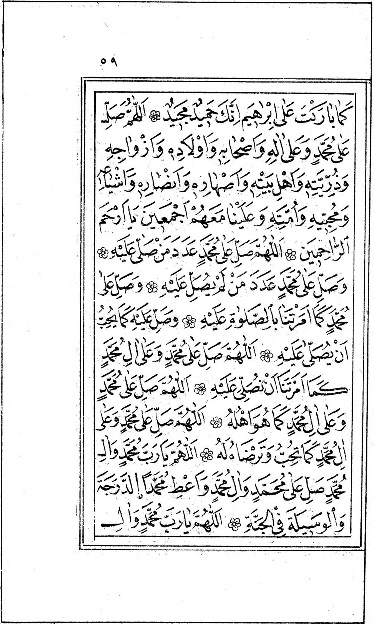 ٥٩
كَمَا بَارَكْتَ عَلَى اِبْرٰهِيمَ اِنَّكَ حَمِيدٌ مَجِيدٌ ۞ اَللّٰهُمَّ صَلِّ
عَلٰى مُحَمَّدٍ وَعَلٰى اٰلِهِ وَاَصْحَابِهِ وَاَوْلَادِهِ وَاَزْوَاجِهِ
وَذُرِّيَّتِهِ وَاَهْلِ بَيْتِهِ وَاَصْهَارِهِ وَاَنْصَارِهِ وَاَشْيَاعِهِ
وَمُحِبِّيهِ وَاُمَّتِهِ وَعَلَيْنَا مَعَهُمْ اَجْمَعِينَ يَا اَرْحَمَ
الرَّاحِمِينَ ۞ اَللّٰهُمَّ صَلِّ عَلٰى مُحَمَّدٍ عَدَدَ مَنْ صَلّٰى عَلَيْهِ ۞
وَصَلِّ عَلٰى مُحَمَّدٍ عَدَدَ مَنْ لَمْ يُصَلِّ عَلَيْهِ ۞ وَصَلِّ عَلٰى
مُحَمَّدٍ كَمَا اَمَرْتَنَا بِالصَّلٰوةِ عَلَيْهِ ۞ وَصَلِّ عَلَيْهِ كَمَا يُحِبُّ
اَنْ يُصَلّٰى عَلَيْهِ ۞ اَللّٰهُمَّ صَلِّ عَلٰى مُحَمَّدٍ وَعَلٰى اٰلِ مُحَمَّدٍ
كَمَا اَمَرْتَنَا اَنْ نُصَلِّىَ عَلَيْهِ ۞ اَللّٰهُمَّ صَلِّ عَلٰى مُحَمَّدٍ
وَعَلٰى اٰلِ مُحَمَّدٍ كَمَا هُوَ اَهْلُهُ ۞ اَللّٰهُمَّ صَلِّ عَلٰى مُحَمَّدٍ وَعَلٰى
اٰلِ مُحَمَّدٍ كَمَا تُحِبُّ وَتَرْضَاهُ لَهُ ۞ اَللّٰهُمَّ يَا رَبَّ مُحَمَّدٍ وَاٰلِ
مُحَمَّدٍ صَلِّ عَلٰى مُحَمَّدٍ وَاٰلِ مُحَمَّدٍ وَاَعْطِ مُحَمَّدًا الدَّرَجَةَ
وَالْوَسِيلَةَ فِى الْجَنَّةِ ۞ اَللّٰهُمَّ يَا رَبَّ مُحَمَّدٍ وَاٰلِ